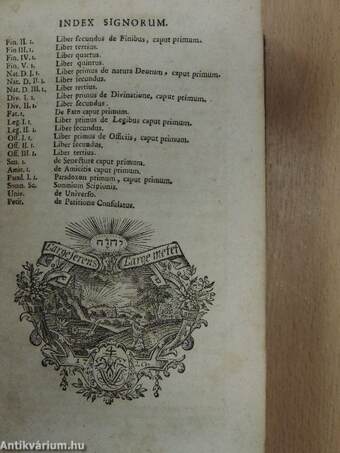 INDEX SIGNORUM.
Fin. II. 1. Liber secundus de Finibus, caput primum.
Fin III. 1. Liber tertius.
Fin. IV. 1. Liber quartus.
Fin. V. 1. Liber quintus.
Nat. D. I. 1. Liber primus de natura Deorum, caput primum.
Nat. D. II. 1. Liber secundus.
Nat. D. III. 1. Liber tertius.
Div. I. 1. Liber primus de Divinatione, caput primum.
Div. II. 1. Liber secundus.
Fat. 1. De Fato caput primum.
Leg. I. 1. Liber primus de Legibus caput primum.
Leg. II. 1. Liber secundus.
Off. I. 1. Liber primus de Officiis, caput primum.
Off. II. 1. Liber secundus.
Off. III. 1. Liber tertius.
Sen. 1. de Senectute caput primum.
Amic. 1. de Amicitia caput primum.
Parad. I. 1. Paradoxon primum, caput primum.
Somn. Sc. Somnium Scipionis.
Univ. de Universo.
Petit. de Petitione Consulatus.
יהוה
Large ferens Large metet
Antikvárium.hu